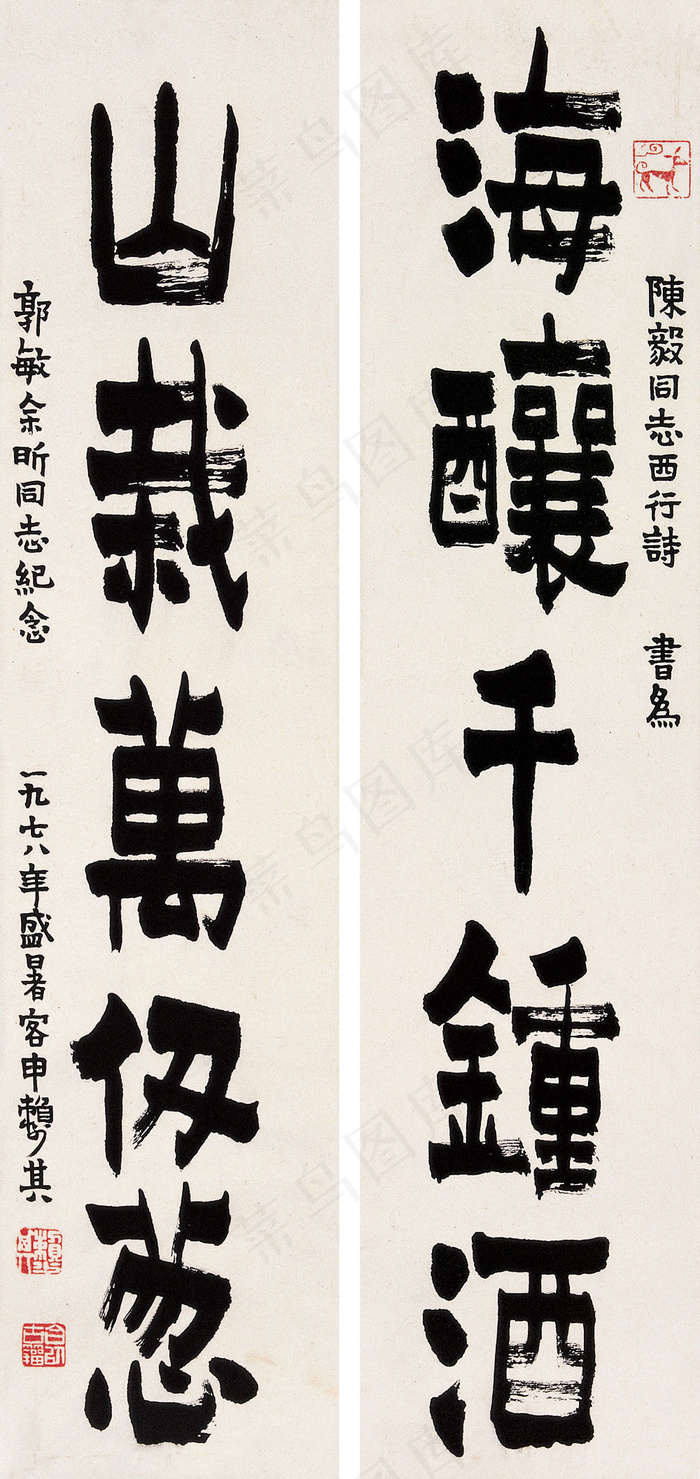 陳毅同志西行詩 書為
海釀千鍾酒
山栽萬仭葱
郭敏余昕同志紀念
一九七八年盛暑客申賴少其
菜鸟图库